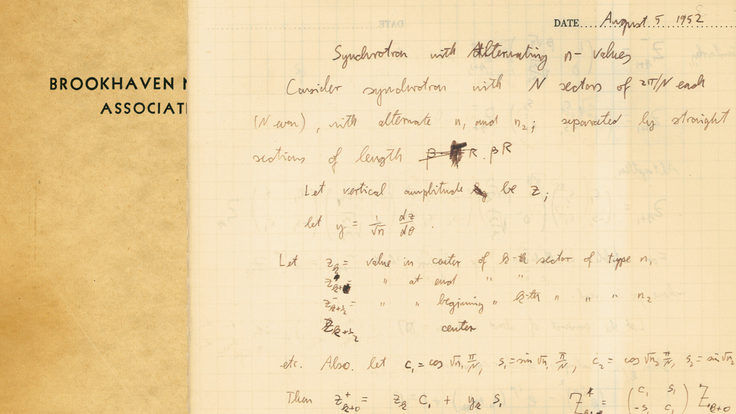 BROOKHAVEN N
ASSOCIATE
DATE August 5 1952
Synchrotron with Alternating n-values
Consider synchrotron with N sectors of 2π/N each
(N even), with alternate n₁ and n₂; separated by straight
sections of length βR
Let vertical amplitude be z;
let y = 1/√n dz/dθ.
Let z_k = value in center of k-th sector of type n₁
" at end " "
" " beginning " k-th " " " n₂
center
etc. Also let c₁ = cos √n₁ π/N, s₁ = sin √n₁ π/N, c₂ = cos √n₂ π/N, s₂ = sin √n₂
Then z⁺ = z_k c₁ + y_k s₁ Z = (c₁ s₁ -s₁ c₁) Z